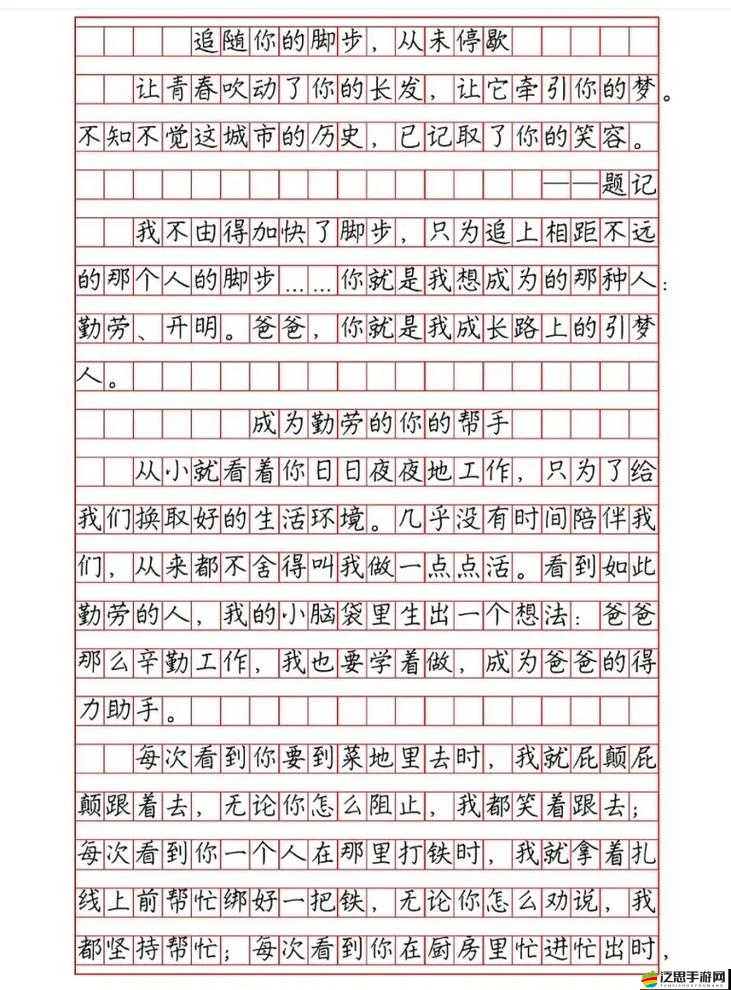 追随你的脚步，从未停歇
让青春吹动了你的长发，让它牵引你的梦。
不知不觉这城市的历史，已记取了你的笑容。
——题记
我不由得加快了脚步，只为追上相距不远
的那个人的脚步……你就是我想成为的那种人：
勤劳、开明。爸爸，你就是我成长路上的引梦
人。
成为勤劳的你的帮手
从小就看着你日日夜夜地工作，只为了给
我们换取好的生活环境。几乎没有时间陪伴我
们，从来都不舍得叫我做一点点活。看到如此
勤劳的人，我的小脑袋里生出一个想法：爸爸
那么辛勤工作，我也要学着做，成为爸爸的得
力助手。
每次看到你要到菜地里去时，我就屁颠屁
颠跟着去，无论你怎么阻止，我都笑着跟去；
每次看到你一个人在那里打铁时，我就拿着扎
线上前帮忙绑好一把铁，无论你怎么劝说，我
都坚持帮忙；每次看到你在厨房里忙进忙出时，
泛思手游网